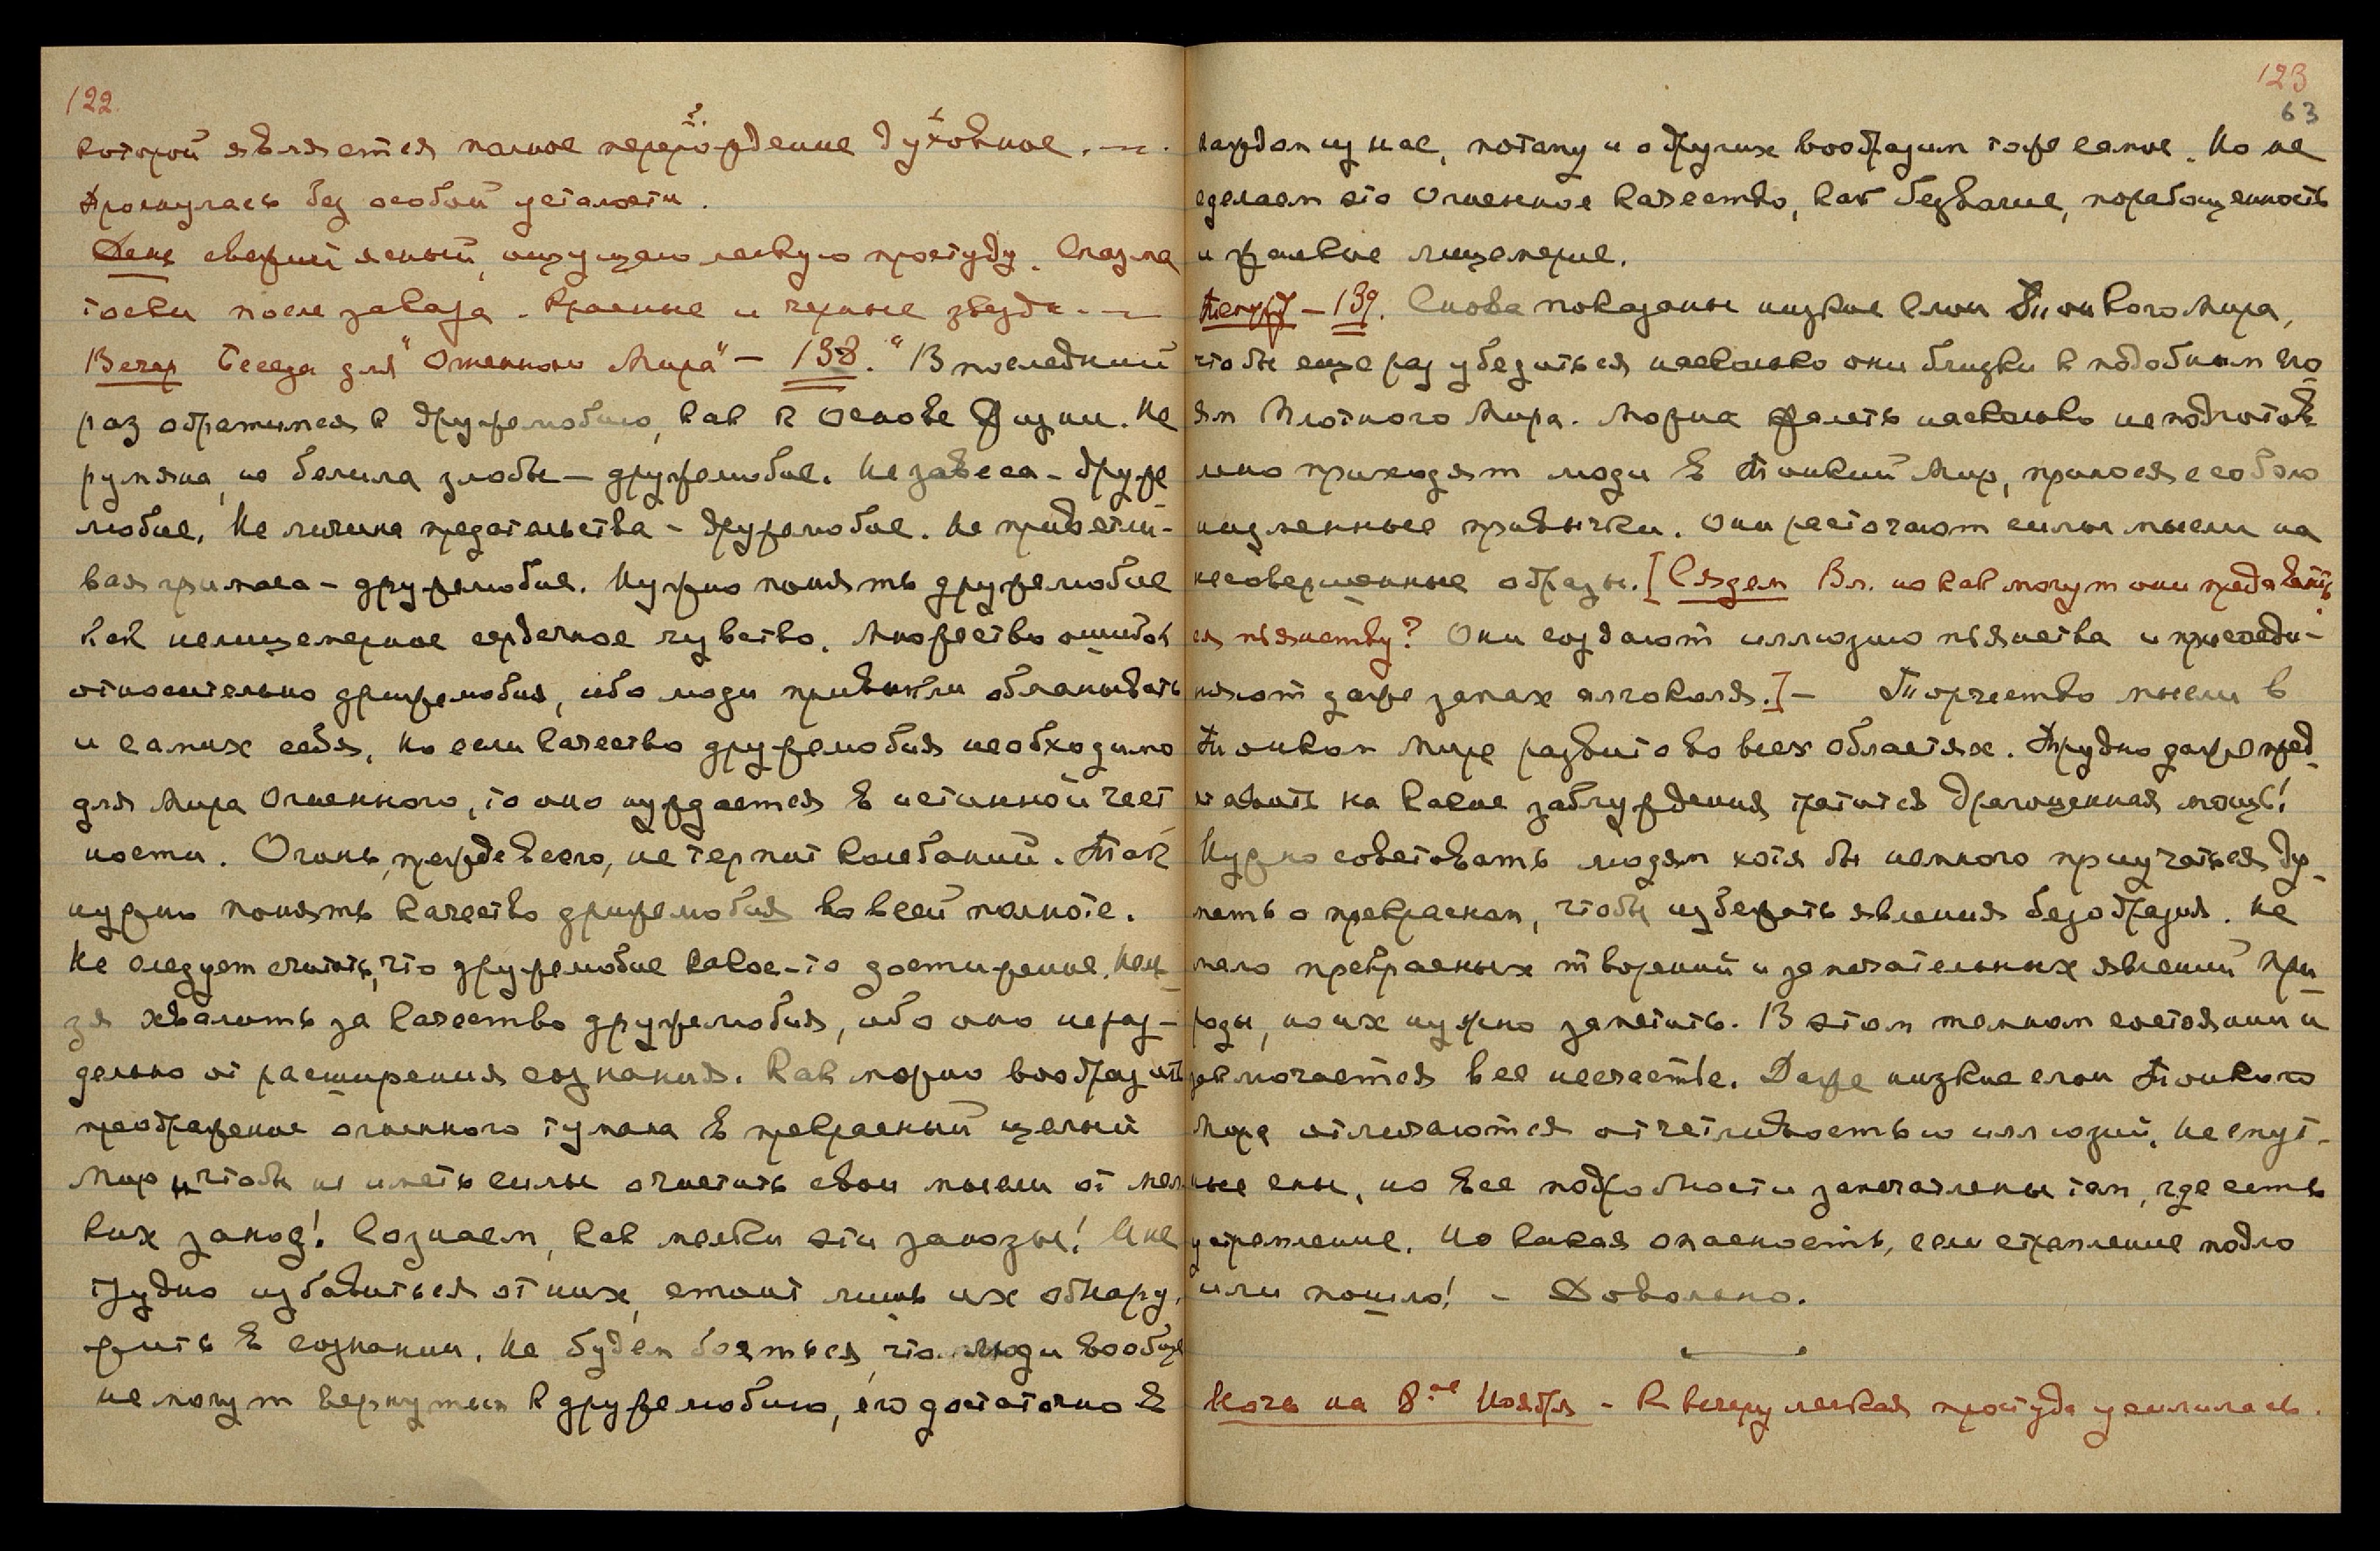 122.
которой является полное перерождение духовное. —
Проснулась без особой усталости.
День свежий ясный, ощущаю легкую простуду. Спазма
тоски после заката. Красные и черные звезды. —
Вечер Беседа для "Огненного Мира" — 138. "В последний
раз обратимся к дружелюбию, как к Основе Жизни. Не
румяна, не белила злобы — дружелюбие. Не завеса - друже
любие. Не личина предательства - дружелюбие. Не приветли-
вая гримаса - дружелюбие. Нужно понять дружелюбие
как нелицемерное сердечное чувство. Множество ошибок
относительно дружелюбия, ибо люди привыкли обманывать
и самих себя. Но если качество дружелюбия необходимо
для Мира Огненного, то оно нуждается в истинной чест
ности. Огонь, прежде всего, не терпит колебаний. Так
нужно понять качество дружелюбия во всей полноте.
Не следует считать, что дружелюбие какое-то достижение. Нель-
зя хвалить за качество дружелюбия, ибо оно нераз-
дельно от расширения сознания. Как можно вообразить
преображение огненного тумана в прекрасный целый
Мир и чтобы не иметь силы очистить свои мысли от мел
ких заноз! Сознаем, как мелки эти занозы! Не
трудно избавиться от них, стоит лишь их обнару-
жить в сознании. Не будем бояться, что люди вообще
не могут вернуться к дружелюбию, его достаточно в
123
63
каждом из нас, потому и о других вообразим тоже самое. Но не
сделаем это Огненное качество, как безволие, порабощенность
и жалкое лицемерие.
Тетрадь - 139. Снова показаны низкие слои Тонкого Мира,
чтобы еще раз убедиться насколько они близки к подобным сло
ям Плотного Мира. Можно жалеть насколько неподготов
лено приходят люди в Тонкий Мир, принося с собою
низменные привычки. Они расточают силы мысли на
несовершенные образы. [Сядем Вл. но как могут они предавать
ся пьянству? Они создают иллюзию пьянства и присоеди-
няют даже запах алкоголя.] — Творчество мысли в
Тонком Мире развито во всех областях. Трудно даже пред
ставить на какие заблуждения тратится драгоценная мощь!
Нужно советовать людям хотя бы немного приучаться ду-
мать о прекрасном, чтобы избежать явления безобразия. Не
мало прекрасных творений и замечательных явлений При
роды, но их нужно заметить. В этом темном состоянии и
заключается все несчастье. Даже низкие слои Тонкого
Мира отличаются отчетливостью иллюзий. Не смут-
ные сны, но все подробности запечатлены там, где есть
устремление. Но какая опасность, если стремление подло
или пошло! - Довольно.
Ночь на 8ое Ноября - К вечеру легкая простуда усилилась.